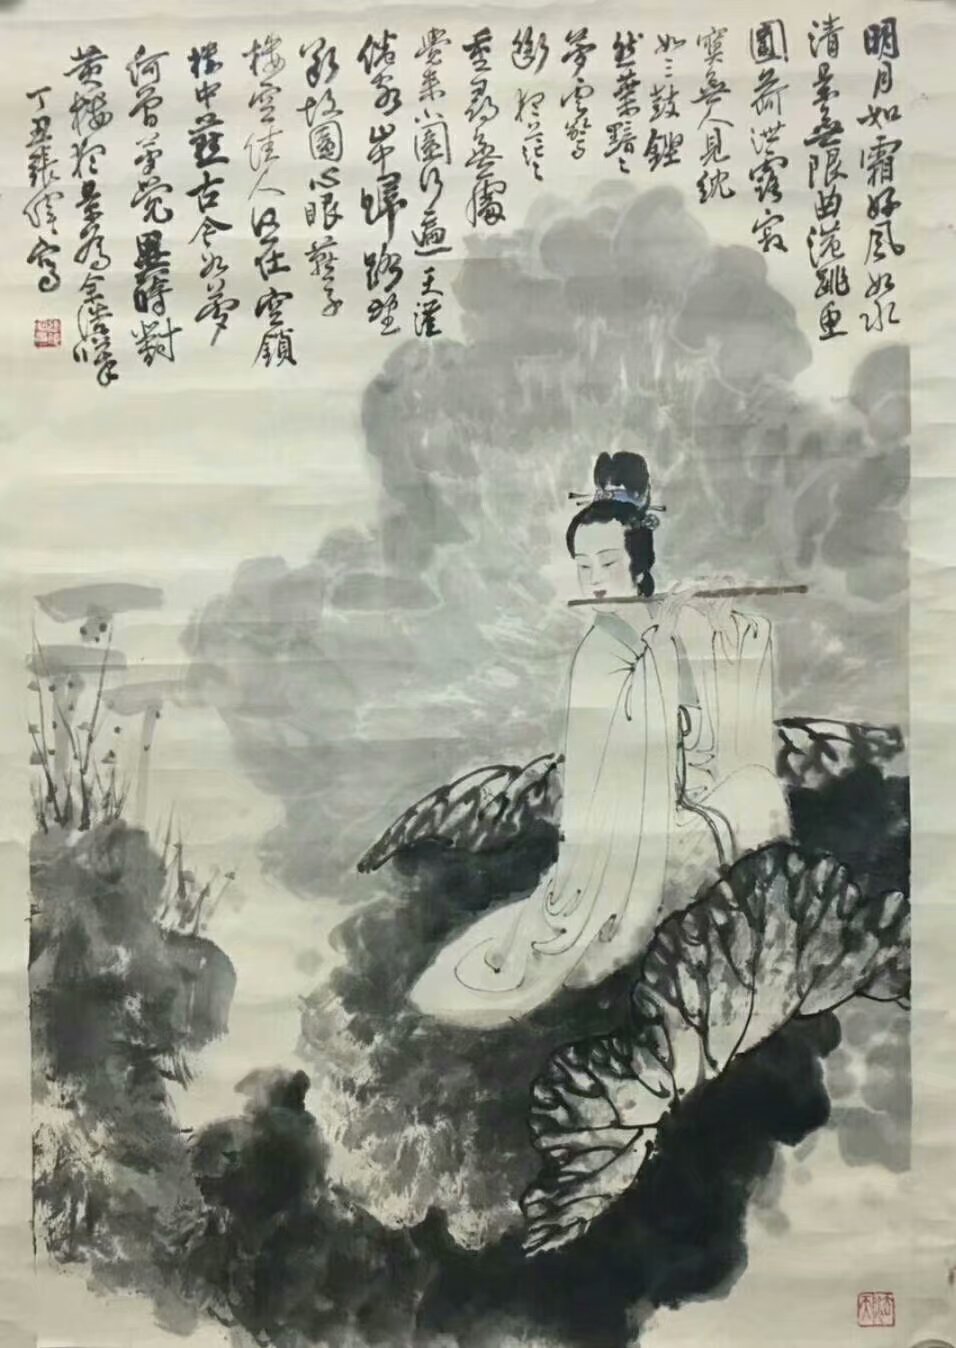 明月如霜好风如水
清景無限曲港跳魚
圓荷泄露寂
寞無人見紞
如三鼓鏗
然葉黯々
夢雲驚
斷夜茫々
重尋無處
覺來小園行遍天涯
倦客山中歸路望
斷故園心眼燕子
樓空佳人何在空鎖
樓中燕古今如夢
何曾夢覺異時對
黄樓夜景為余浩嘆
丁丑張寫